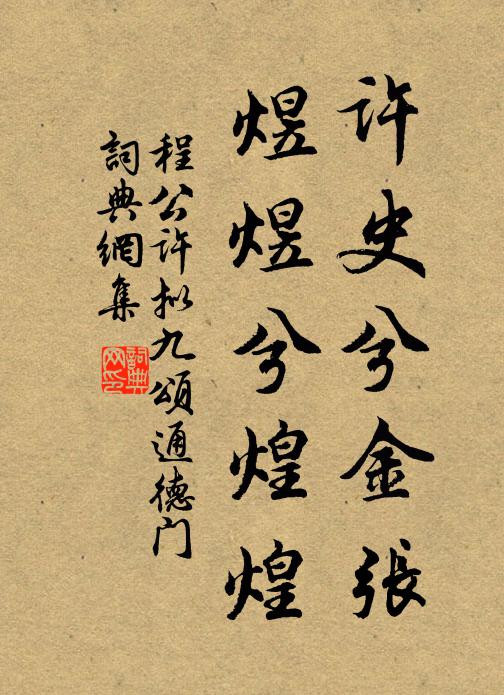 許史兮金張
煜煜兮煌煌
程公許擬九頌通德門
詞典網集
詞典網印